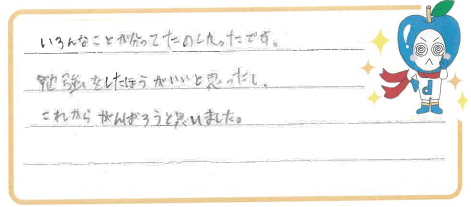 いろんなことが分ってたのしかったです。
勉強をしたほうがいいと思ったし、
これからがんばろうと思いました。
d